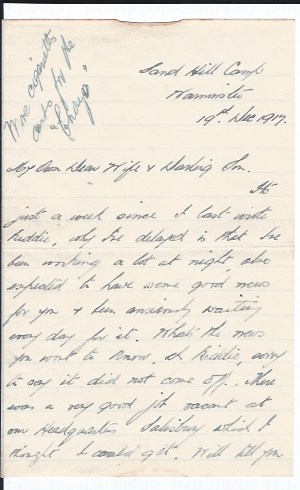 More cigarette
cards for the
Sand Hill Camp
Warminster
19th Dec 1917.
My Own Dear Wife & Darling Son.
Its
just a week since I last wrote
Kiddie, why I've delayed is that I've
been working a lot at night, also
expected to have some good news
for you & been anxiously waiting
every day for it. What's the news
you want to know, eh Kiddie, sorry
to say it did not come off. There
was a very good job vacant at
our Headquarters Salisbury which I
thought I could get. Will tell you